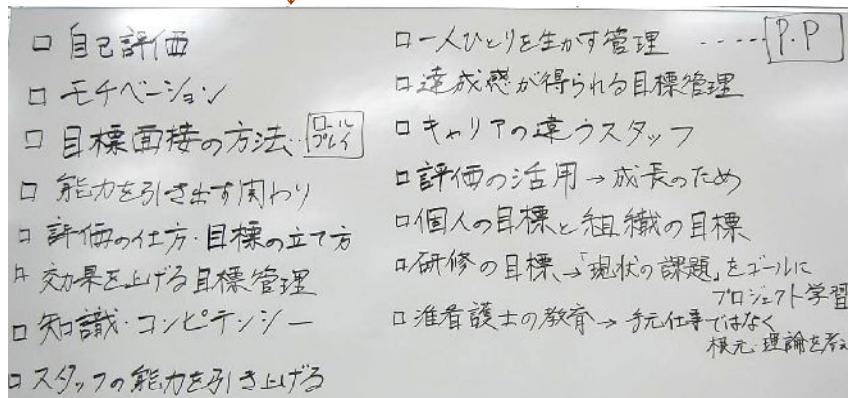 □ 自己評価
□ モチベーション
□ 目標面接の方法…ロールプレイ
□ 能力を引き出す関わり
□ 評価の仕方・目標の立て方
□ 効果を上げる目標管理
□ 知識・コンピテンシー
□ スタッフの能力を引き上げる
□ 一人ひとりを生かす管理 ----- P.P
□ 達成感が得られる目標管理
□ キャリアの違うスタッフ
□ 評価の活用→成長のため
□ 個人の目標と組織の目標
□ 研修の目標→「現状の課題」をゴールに
プロジェクト学習
□ 准看護士の教育→手元仕事ではなく
根元・理論を